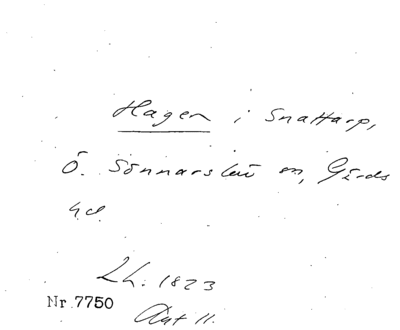 Hagen i Snattarp,
Ö. Sönnarslöv sn, Gärds
hd.
Lh. 1823
Nr 7750
Akt 11.